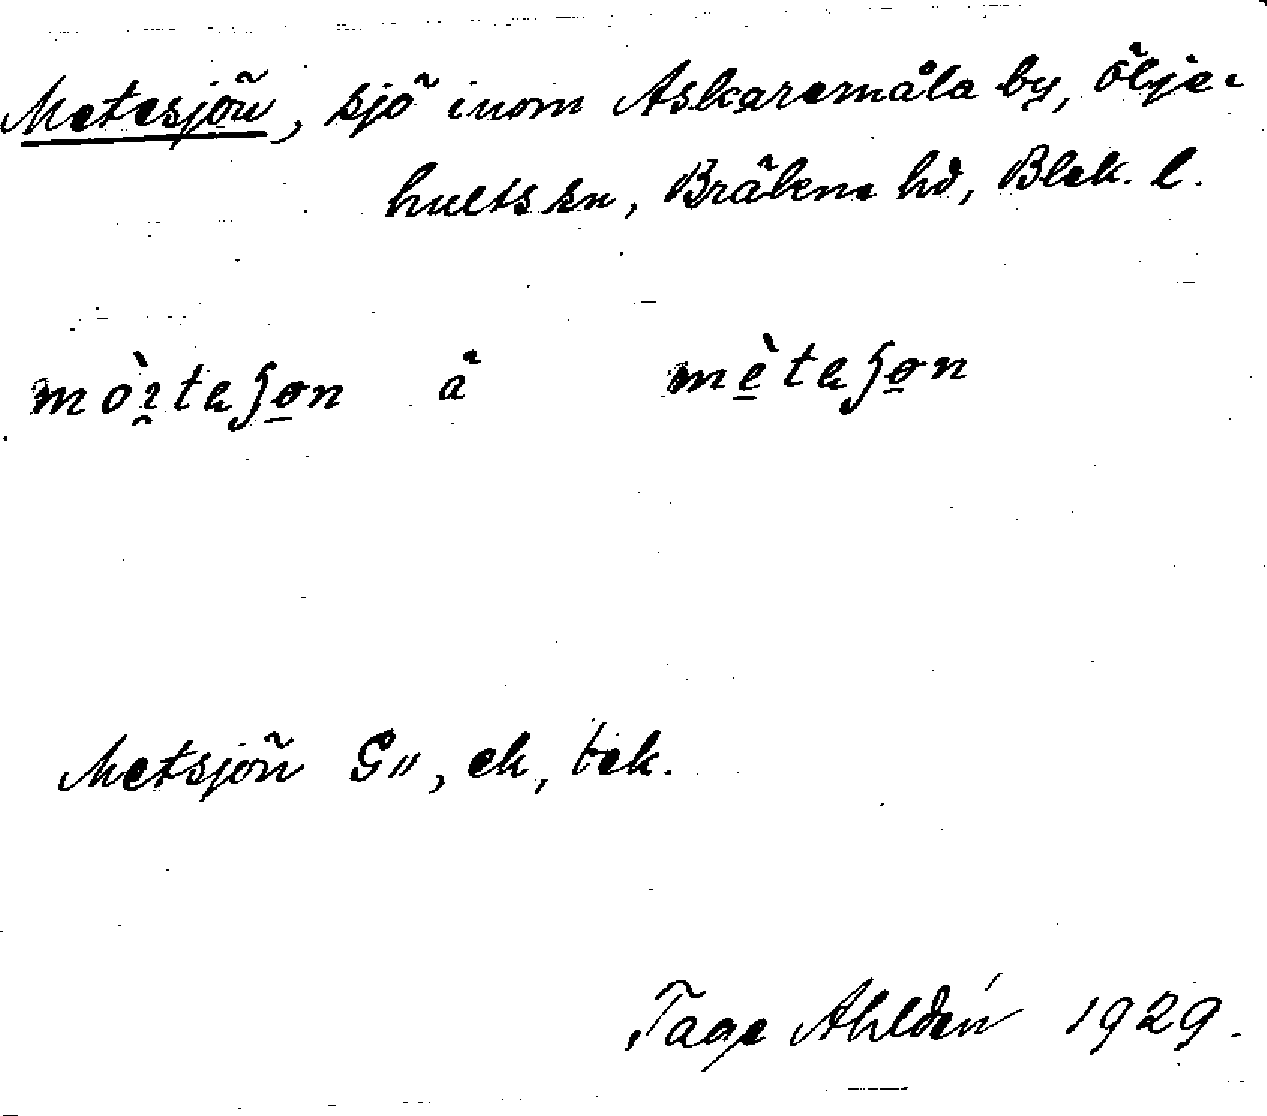 Metesjön, sjö inom Askaremåla by, Öljehults sn, Bräkne hd, Blek. l.
mòrtaʃøn å mètaʃøn
Metsjön G", ek, tek.
Tage Ahldén 1929.